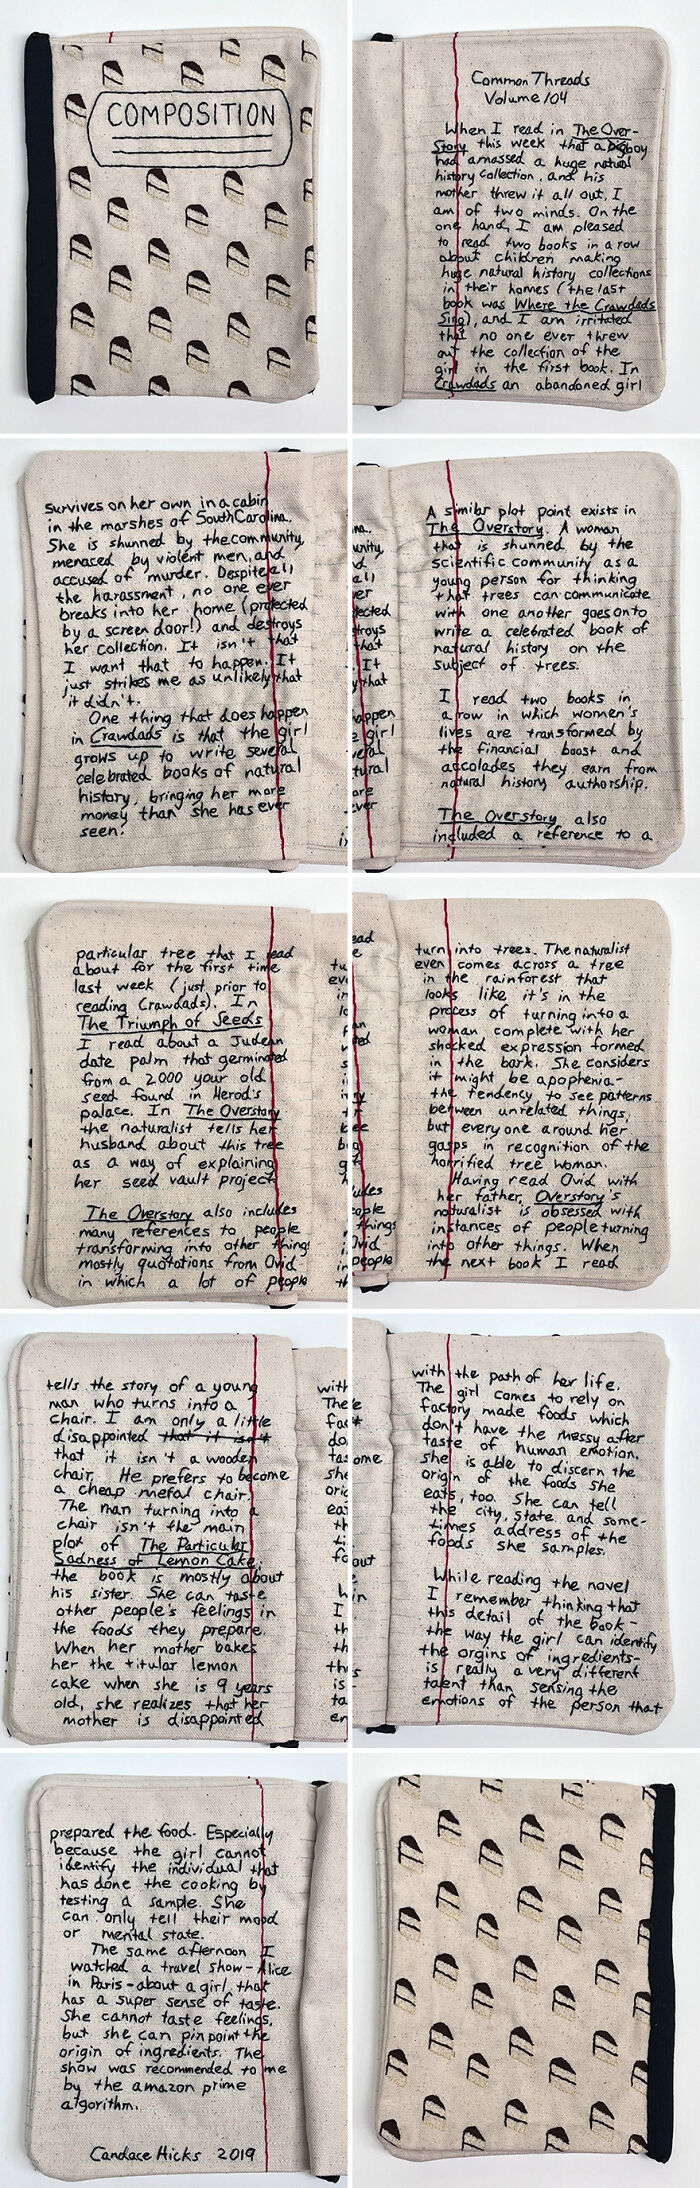 COMPOSITION
Common Threads
Volume 104
When I read in The Over-
Story this week that a boy
had amassed a huge natural
history collection, and his
mother threw it all out, I
am of two minds. On the
one hand, I am pleased
to read two books in a row
about children making
huge natural history collections
in their homes (the last
book was Where the Crawdads
Sing), and I am irritated
that no one ever threw
out the collection of the
girl in the first book. In
Crawdads an abandoned girl
survives on her own in a cabin
in the marshes of South Carolina.
She is shunned by the community,
menaced by violent men, and
accused of murder. Despite all
the harassment, no one ever
breaks into her home (protected
by a screen door!) and destroys
her collection. It isn't that
I want that to happen. It
just strikes me as unlikely that
it didn't.
One thing that does happen
in Crawdads is that the girl
grows up to write several
celebrated books of natural
history, bringing her more
money than she has ever
seen.
A similar plot point exists in
The Overstory. A woman
that is shunned by the
scientific community as a
young person for thinking
that trees can communicate
with one another goes on to
write a celebrated book of
natural history on the
subject of trees.
I read two books in
a row in which women's
lives are transformed by
the financial boost and
accolades they earn from
natural history authorship.
The Overstory also
included a reference to a
particular tree that I read
about for the first time
last week (just prior to
reading Crawdads). In
The Triumph of Seeds
I read about a Judean
date palm that germinated
from a 2000 your old
seed found in Herod's
palace. In The Overstory
the naturalist tells her
husband about this tree
as a way of explaining
her seed vault project.
The Overstory also includes
many references to people
transforming into other things
mostly quotations from Ovid
in which a lot of people
turn into trees. The naturalist
even comes across a tree
in the rainforest that
looks like it's in the
process of turning into a
woman complete with her
shocked expression formed
in the bark. She considers
it might be apophenia-
the tendency to see patterns
between unrelated things,
but everyone around her
gasps in recognition of the
horrified tree woman.
Having read Ovid with
her father, Overstory's
naturalist is obsessed with
instances of people turning
into other things. When
the next book I read
tells the story of a young
man who turns into a
chair. I am only a little
disappointed that it isn't
that it isn't a wooden
chair. He prefers to become
a cheap metal chair.
The man turning into a
chair isn't the main
plot of The Particular
Sadness of Lemon Cake;
the book is mostly about
his sister. She can taste
other people's feelings in
the foods they prepare.
When her mother bakes
her the titular lemon
cake when she is 9 years
old, she realizes that her
mother is disappointed
with the path of her life.
The girl comes to rely on
factory made foods which
don't have the messy after
taste of human emotion.
She is able to discern the
origin of the foods she
eats, too. She can tell
the city, state, and some-
times address of the
foods she samples.
While reading the novel
I remember thinking that
this detail of the book-
the way the girl can identify
the orgins of ingredients-
is really a very different
talent than sensing the
emotions of the person that
prepared the food. Especially
because the girl cannot
identify the individual that
has done the cooking by
testing a sample. She
can only tell their mood
or mental state.
The same afternoon I
watched a travel show-Alice
in Paris-about a girl that
has a super sense of taste.
She cannot taste feelings,
but she can pinpoint the
origin of ingredients. The
show was recommended to me
by the amazon prime
algorithm.
Candace Hicks 2019